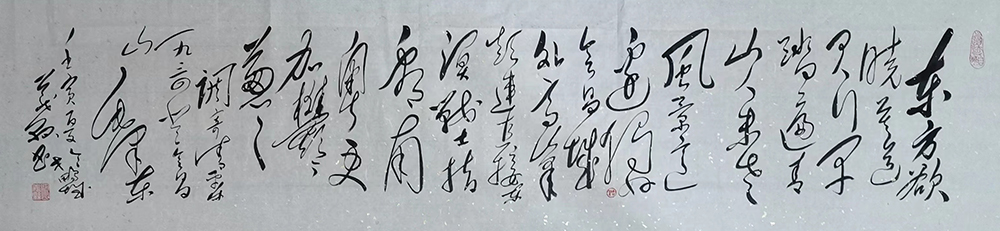 东方欲
晓莫道
君行早
踏遍青
山人未老
風景这
边独好
会昌城
外高峯
颠连直接东
溟战士指
看南
粤更
加鬱鬱
葱葱
调寄清平乐
一九三四年登会昌
山 毛泽东
壬寅夏